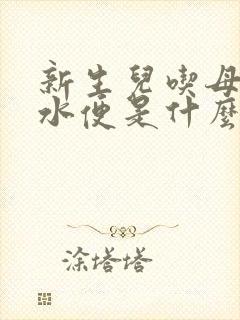 新生兒喫母
水便是什麼
涂塔塔